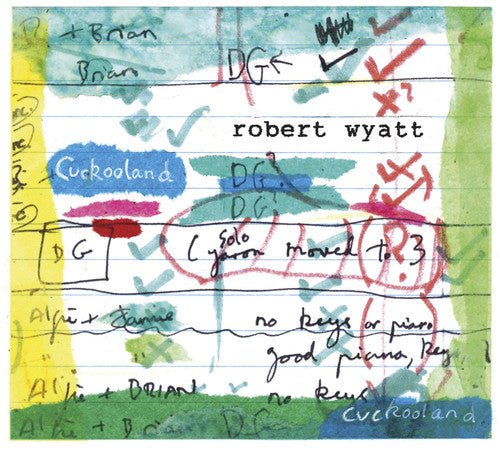 + Brian
Brian DG ←
x?
robert wyatt
Cuckooland DG?
DG
DG (solo yaron moved to ? 3
Alfie + Jamie no keys or piano
" " good piano, key
Alfie + BRIAN no keys
Cuckooland
Alfie + Brian DG